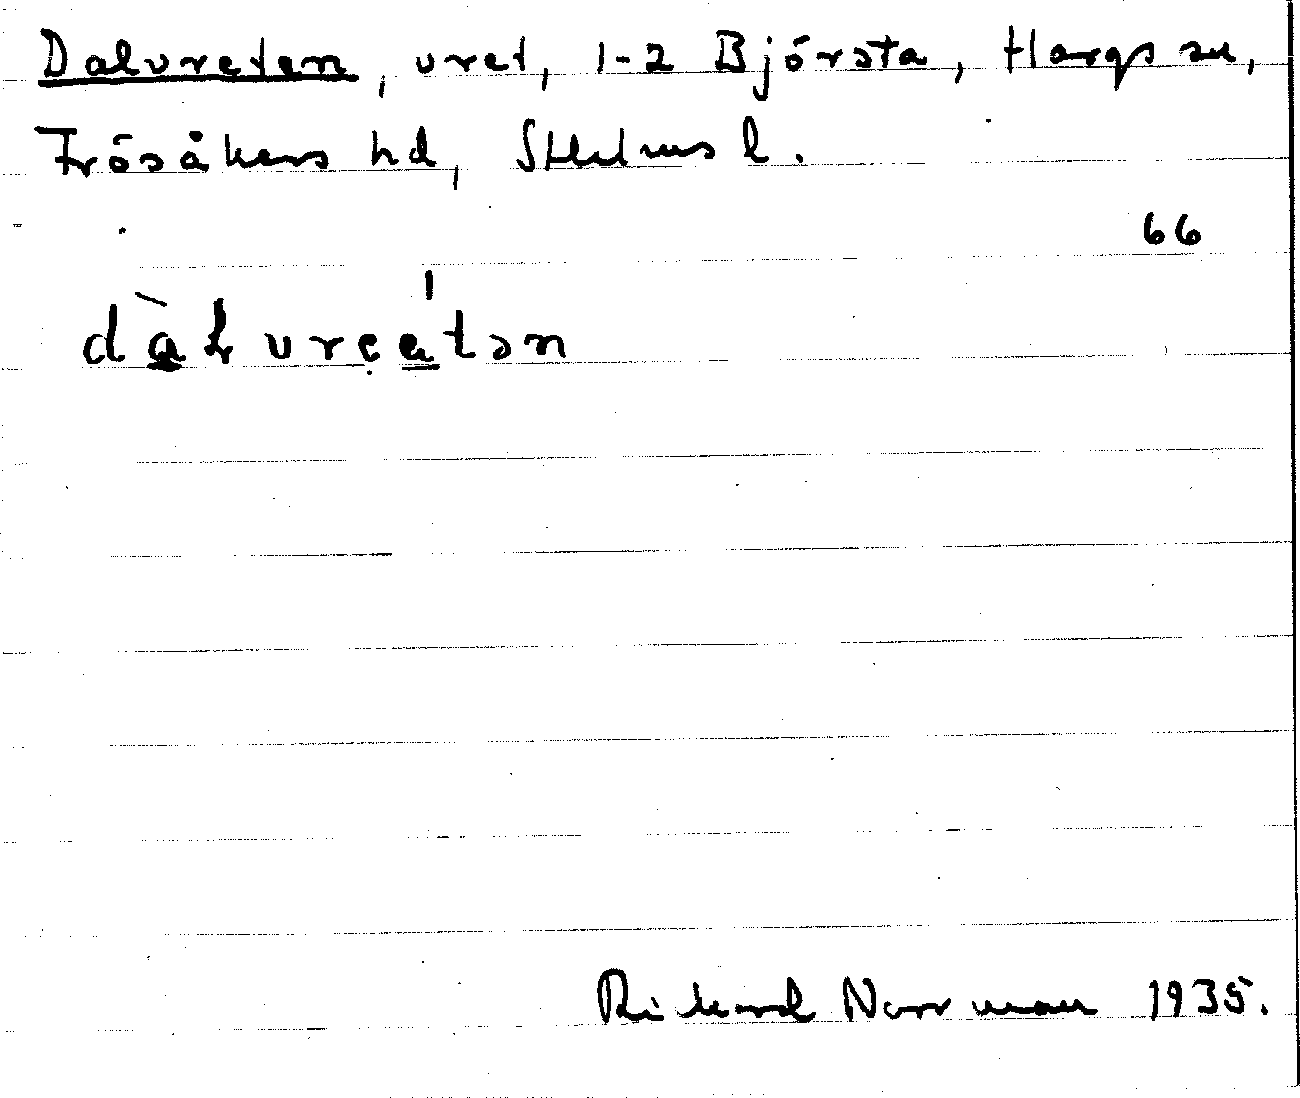 Dalvreten, vret, 1-2 Björsta, Hargs sn,
Frösåkers hd, Sthlms l.
66
dàɫvrẹátən
Rickard Norrman 1935.